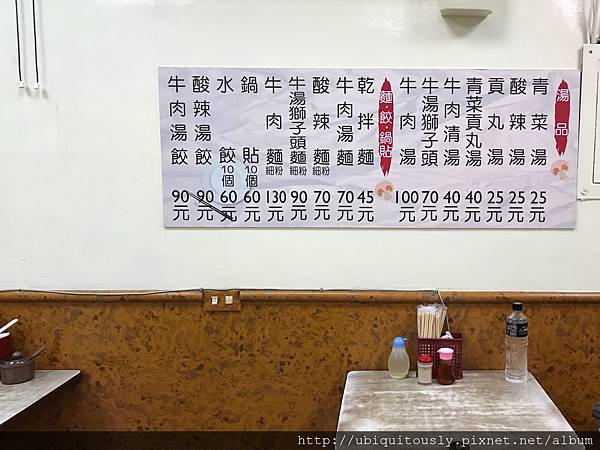 湯品
青菜湯 25元
酸辣湯 25元
貢丸湯 25元
青菜貢丸湯 40元
牛肉清湯 40元
牛湯獅子頭 70元
牛肉湯 100元
麵·餃·鍋貼
乾拌麵 45元
牛肉湯麵 70元
酸辣麵 細粉 70元
牛湯獅子頭麵 細粉 90元
牛肉麵 細粉 130元
鍋貼 10個 60元
水餃 10個 60元
酸辣湯餃 90元
牛肉湯餃 90元
http://ubiquitously.pixnet.net/album